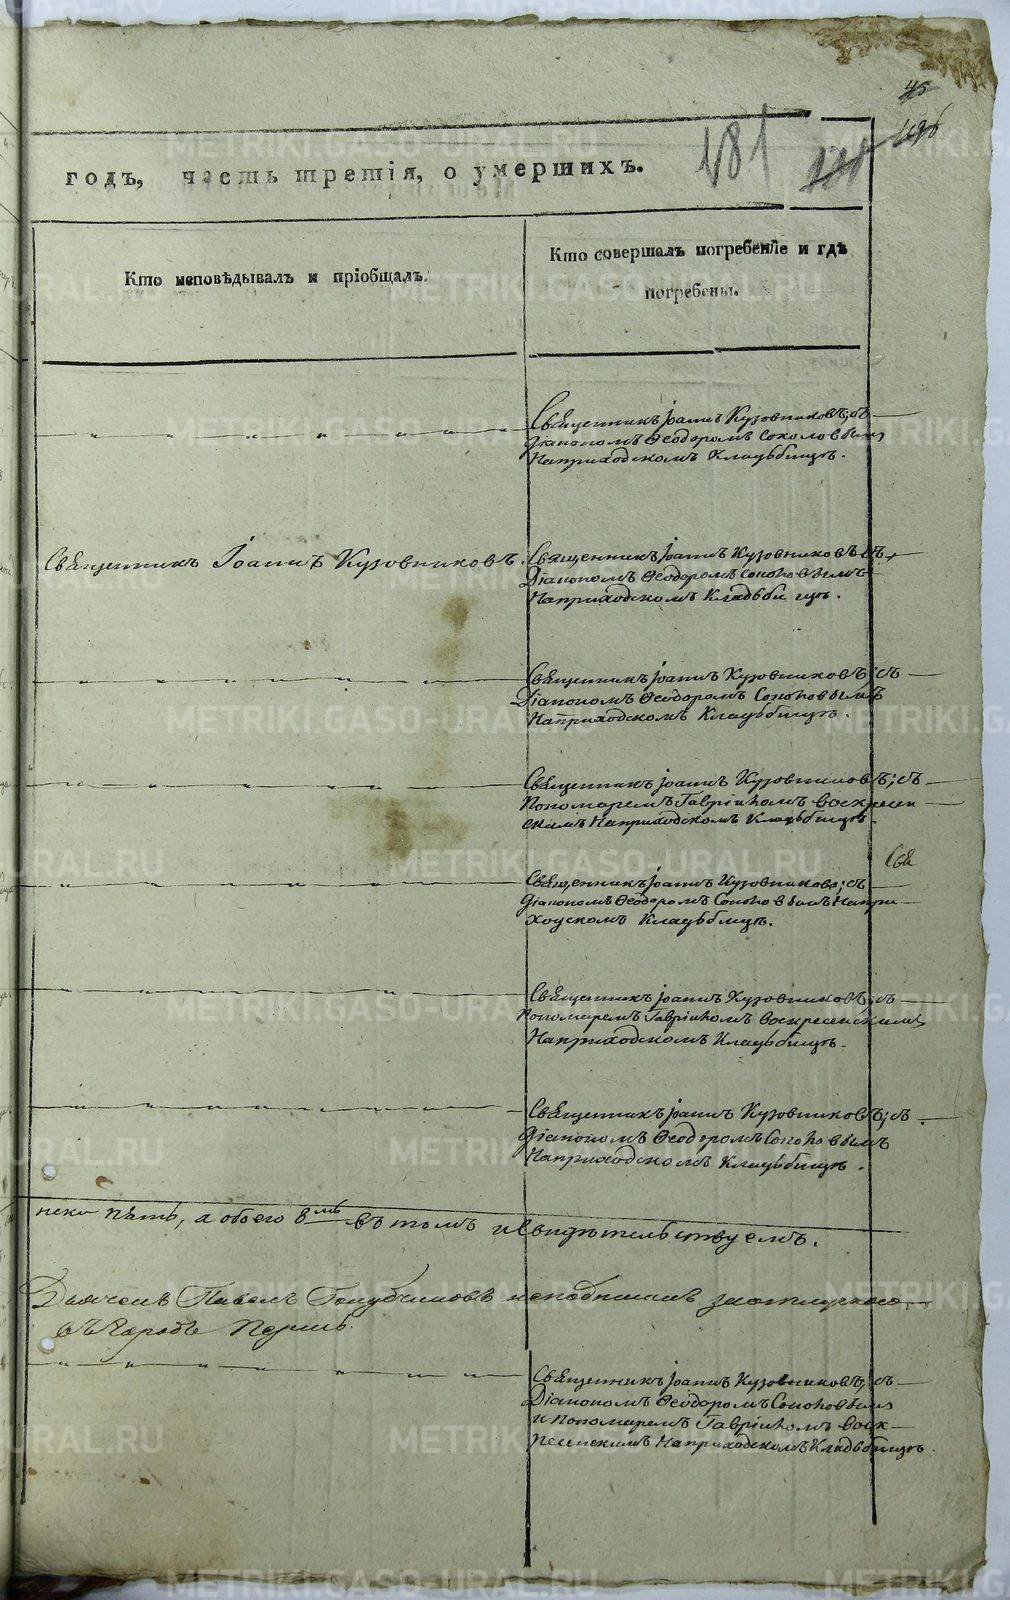 45
181
годъ, часть третія, о умершихъ.
Кто исповѣдывалъ и пріобщалъ.
Кто совершалъ погребеніе и гдѣ
погребены.
Священникъ Іоаннъ Кузовниковъ; съ
Діакономъ Ѳеодоромъ Соколовымъ
На приходскомъ Кладьбищѣ.
Священникъ Іоаннъ Кузовниковъ.
Священникъ Іоаннъ Кузовниковъ съ
Діакономъ Ѳеодоромъ Соколовымъ
На приходскомъ Кладьбищѣ.
Священникъ Іоаннъ Кузовниковъ; съ
Діакономъ Ѳеодоромъ Соколовымъ
На приходскомъ Кладьбищѣ.
Священникъ Іоаннъ Кузовниковъ; съ
Пономаремъ Гавріиломъ Воскресен
скимъ На приходскомъ Кладьбищѣ.
Свя
Священникъ Іоаннъ Кузовниковъ; съ
Діакономъ Ѳеодоромъ Соколовымъ На при-
ходскомъ Кладьбищѣ.
Священникъ Іоаннъ Кузовниковъ; съ
Пономаремъ Гавріиломъ Воскресенскимъ
На приходскомъ Кладьбищѣ.
Священникъ Іоаннъ Кузовниковъ; съ
Діакономъ Ѳеодоромъ Соколовымъ
На приходскомъ Кладьбищѣ.
ска пять, а обоего 8мь въ томъ и свидѣтельствуемъ.
Дьячекъ Павелъ Голубчиковъ неподписалъ за отлучкою,
въ Городъ Пермь.
Священникъ Іоаннъ Кузовниковъ, съ
Діакономъ Ѳеодоромъ Соколовымъ
и Пономаремъ Гавріиломъ Воск-
ресенскимъ На приходскомъ Кладьбищѣ
METRIKI.GASO-URAL.RU